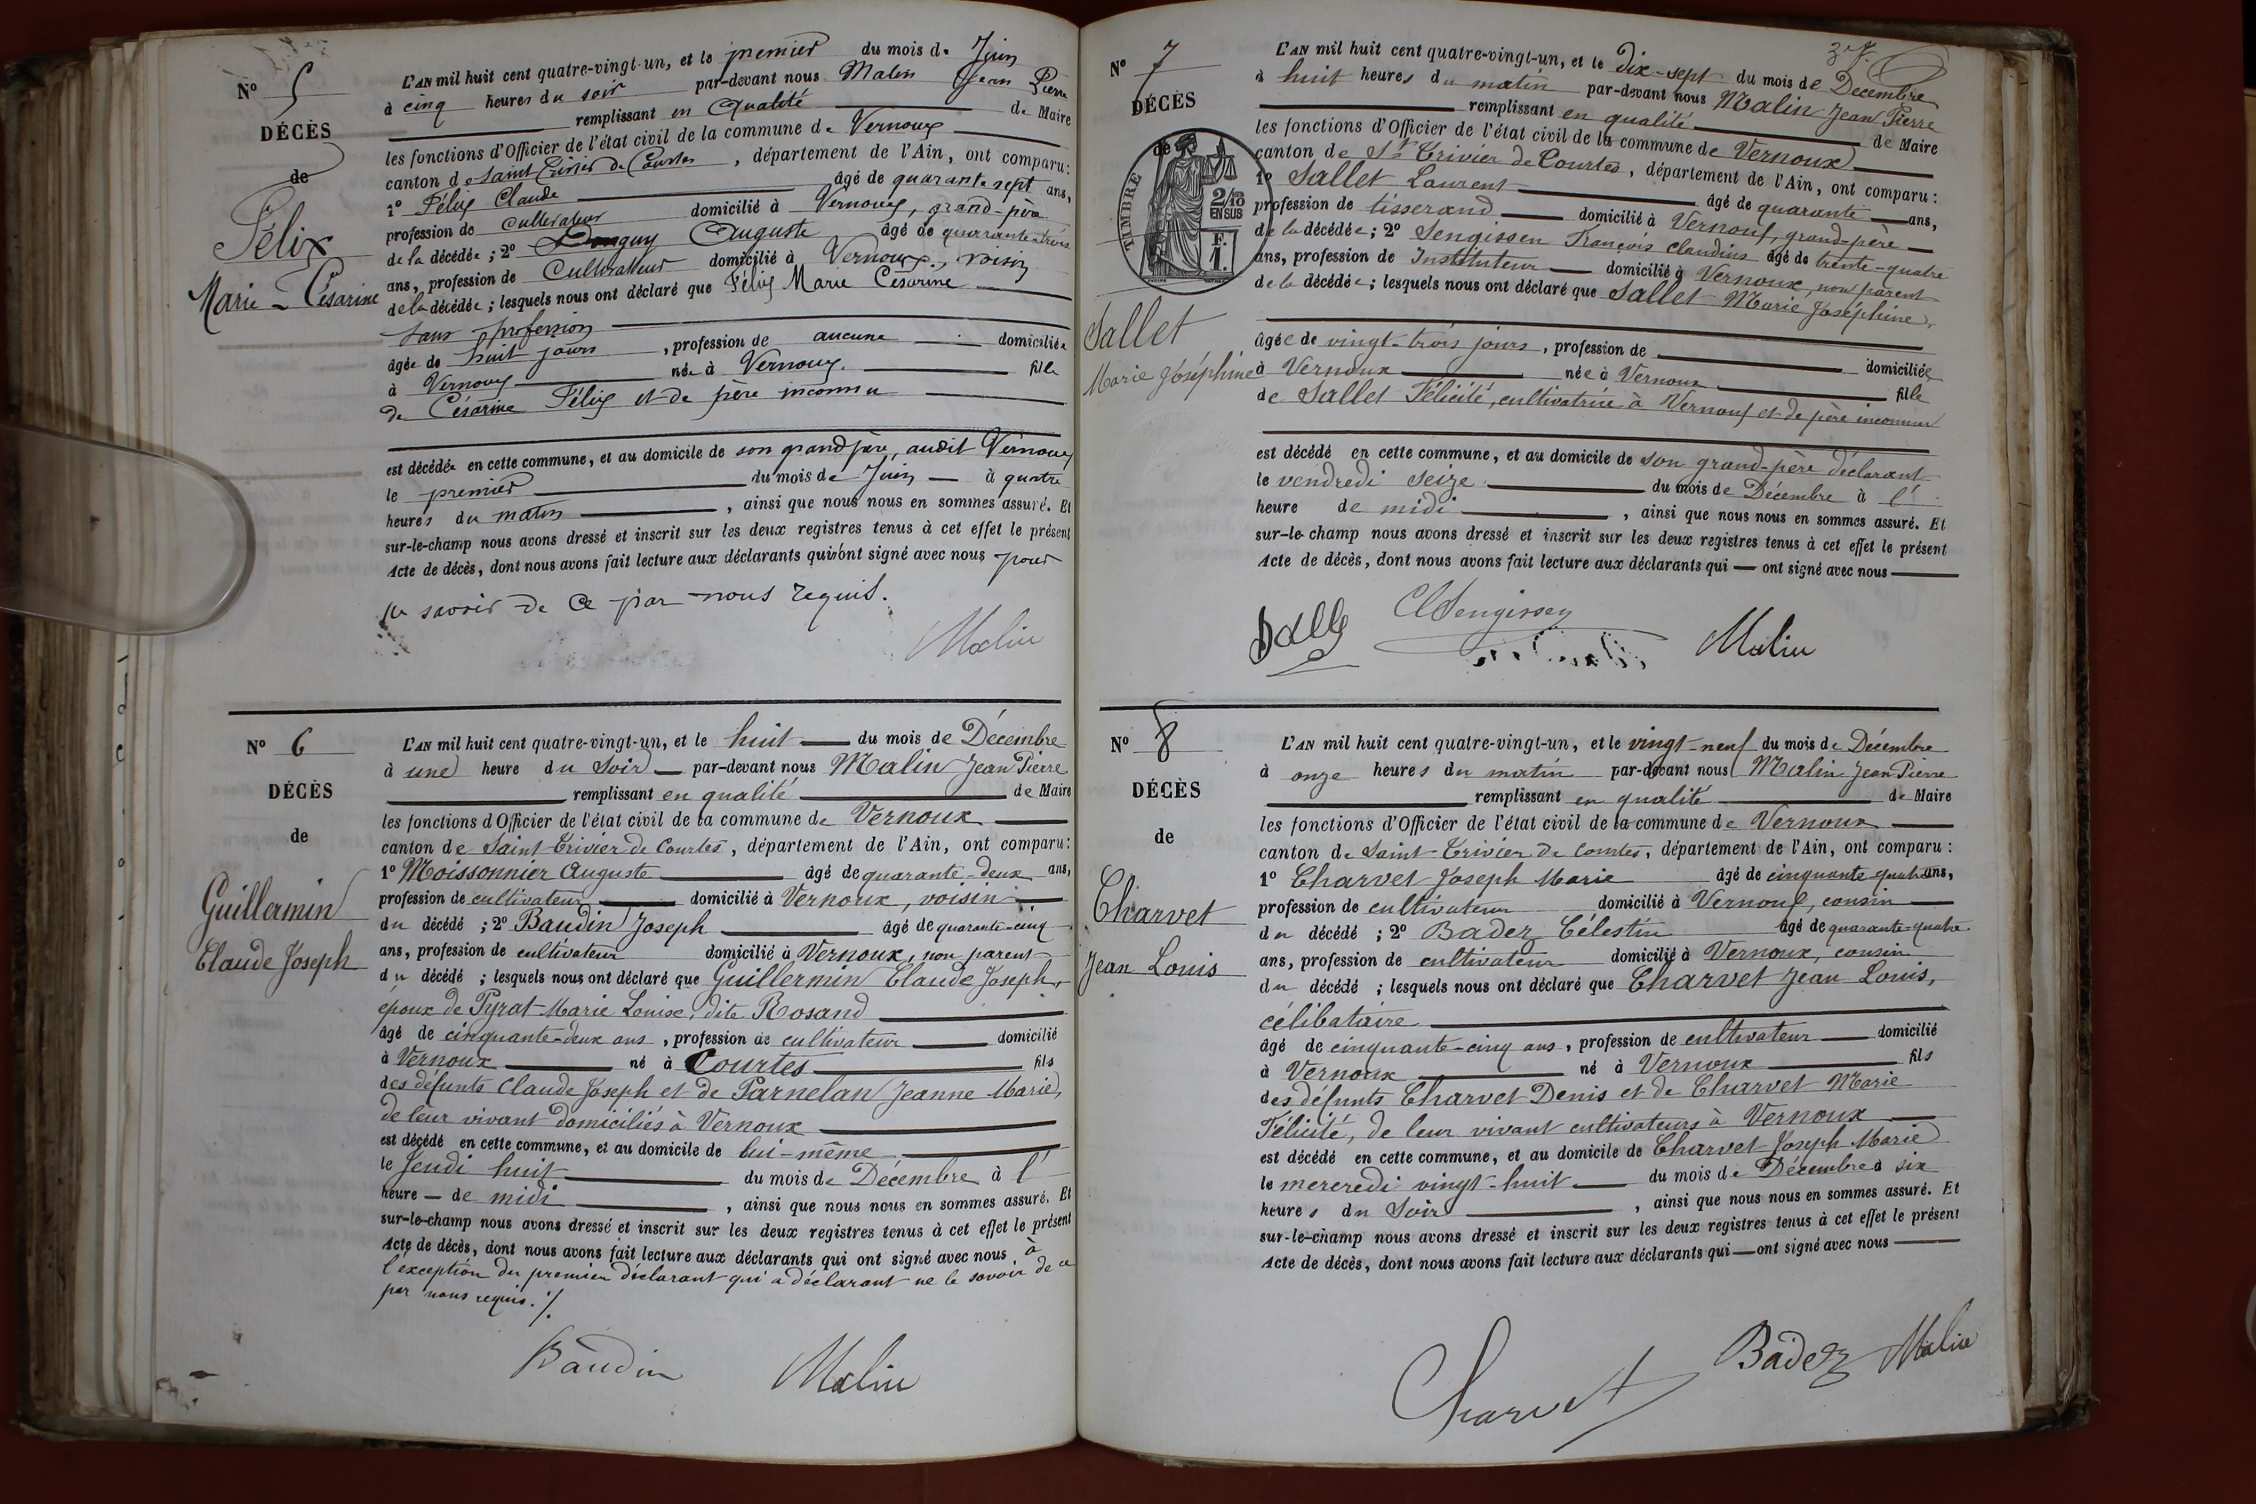 N° 5
DÉCÈS
de
Félix
Marie-Césarine
L'AN mil huit cent quatre-vingt-un, et le premier du mois de Juin
à cinq heures du soir par-devant nous Malin Jean Pierre
remplissant en qualité de Maire
les fonctions d'Officier de l'état civil de la commune de Vernoux
canton de Saint Trivier de Courtes, département de l'Ain, ont comparu :
1° Félix Claude âgé de quarante sept ans,
profession de cultivateur domicilié à Vernoux, grand-père
de la décédée ; 2° Donguy Auguste âgé de quarante-trois
ans, profession de Cultivateur domicilié à Vernoux, voisin
de la décédée ; lesquels nous ont déclaré que Félix Marie Césarine
sans profession
âgée de huit jours, profession de aucune domiciliée
à Vernoux née à Vernoux. fille
de Césarine Félix et de père inconnu
est décédée en cette commune, et au domicile de son grand père, audit Vernoux
le premier du mois de Juin à quatre
heures du matin, ainsi que nous nous en sommes assuré. Et
sur-le-champ nous avons dressé et inscrit sur les deux registres tenus à cet effet le présent
Acte de décès, dont nous avons fait lecture aux déclarants qui n'ont signé avec nous pour
ne savoir de ce par nous requis.
Malin
N° 6
DÉCÈS
de
Guillermin
Claude Joseph
L'AN mil huit cent quatre-vingt-un, et le huit du mois de Décembre
à une heure du soir par-devant nous Malin Jean Pierre
remplissant en qualité de Maire
les fonctions d'Officier de l'état civil de la commune de Vernoux
canton de Saint-Trivier de Courtes, département de l'Ain, ont comparu :
1° Moissonnier Auguste âgé de quarante-deux ans,
profession de cultivateur domicilié à Vernoux, voisin
du décédé ; 2° Baudin Joseph âgé de quarante-cinq
ans, profession de cultivateur domicilié à Vernoux, non parent
du décédé ; lesquels nous ont déclaré que Guillermin Claude Joseph,
époux de Pyrat Marie Louise, dite Rosand
âgé de cinquante-deux ans, profession de cultivateur domicilié
à Vernoux né à Courtes fils
des défunts Claude Joseph et de Parnelan Jeanne Marie,
de leur vivant domiciliés à Vernoux
est décédé en cette commune, et au domicile de lui-même
le Jeudi huit du mois de Décembre à l'
heure de midi, ainsi que nous nous en sommes assuré. Et
sur-le-champ nous avons dressé et inscrit sur les deux registres tenus à cet effet le présent
Acte de décès, dont nous avons fait lecture aux déclarants qui ont signé avec nous à
l'exception du premier déclarant qui a déclarant ne le savoir de ce
par nous requis. /.
Baudin Malin
37.
N° 7
DÉCÈS
de
TIMBRE
2/10
EN SUS
F.
1.
Sallet
Marie Joséphine
L'AN mil huit cent quatre-vingt-un, et le dix-sept du mois de Décembre
à huit heures du matin par-devant nous Malin Jean Pierre
remplissant en qualité de Maire
les fonctions d'Officier de l'état civil de la commune de Vernoux
canton de St Trivier de Courtes, département de l'Ain, ont comparu :
1° Sallet Laurent âgé de quarante ans,
profession de tisserand domicilié à Vernoux, grand-père
de la décédée ; 2° Sengissen François Claudius âgé de trente-quatre
ans, profession de Instituteur domicilié à Vernoux, non parent
de la décédée ; lesquels nous ont déclaré que Sallet Marie Joséphine,
âgée de vingt-trois jours, profession de domiciliée
à Vernoux née à Vernoux fille
de Sallet Félicité, cultivatrice à Vernoux et de père inconnu
est décédé en cette commune, et au domicile de son grand-père déclarant
le vendredi seize du mois de Décembre à l'
heure de midi, ainsi que nous nous en sommes assuré. Et
sur-le-champ nous avons dressé et inscrit sur les deux registres tenus à cet effet le présent
Acte de décès, dont nous avons fait lecture aux déclarants qui ont signé avec nous
Salle Sengissen Malin
N° 8
DÉCÈS
de
Charvet
Jean Louis
L'AN mil huit cent quatre-vingt-un, et le vingt-neuf du mois de Décembre
à onze heures du matin par-devant nous Malin Jean Pierre
remplissant en qualité de Maire
les fonctions d'Officier de l'état civil de la commune de Vernoux
canton de Saint-Trivier de Courtes, département de l'Ain, ont comparu :
1° Charvet Joseph Marie âgé de cinquante quatre ans,
profession de cultivateur domicilié à Vernoux, cousin
du décédé ; 2° Badez Célestin âgé de quarante-quatre
ans, profession de cultivateur domicilié à Vernoux, cousin
du décédé ; lesquels nous ont déclaré que Charvet Jean Louis,
célibataire
âgé de cinquante-cinq ans, profession de cultivateur domicilié
à Vernoux né à Vernoux fils
des défunts Charvet Denis et de Charvet Marie
Félicité, de leur vivant cultivateurs à Vernoux
est décédé en cette commune, et au domicile de Charvet Joseph Marie
le mercredi vingt-huit du mois de Décembre à six
heures du Soir, ainsi que nous nous en sommes assuré. Et
sur-le-champ nous avons dressé et inscrit sur les deux registres tenus à cet effet le présent
Acte de décès, dont nous avons fait lecture aux déclarants qui ont signé avec nous
Charvet Badez Malin